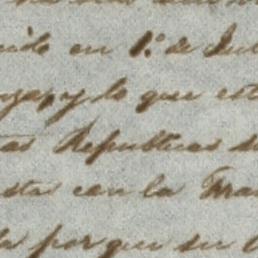 ido en 1.º de Jul
y lo que est
as Republicas d
sta con la Fra
la porque su